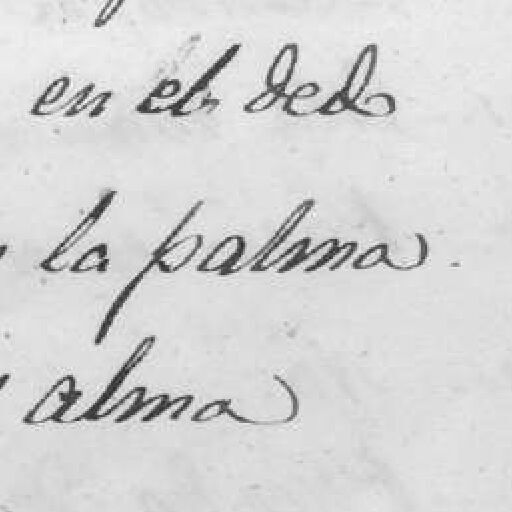 en el dedo
la palma.
alma